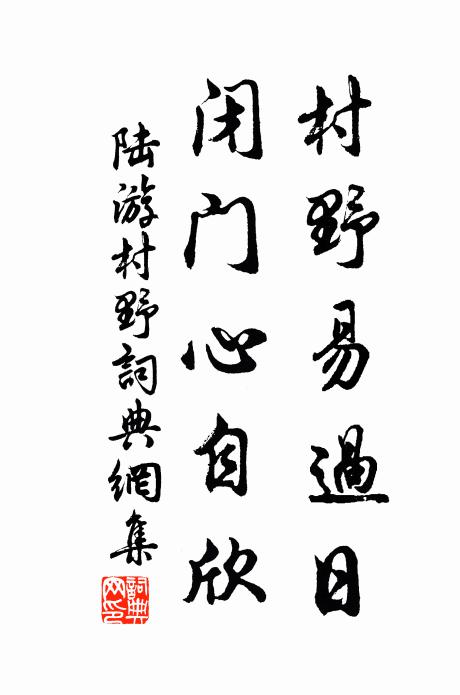 村野易過日
闭门心自欣
陸游村野詞典網集
詞典网印